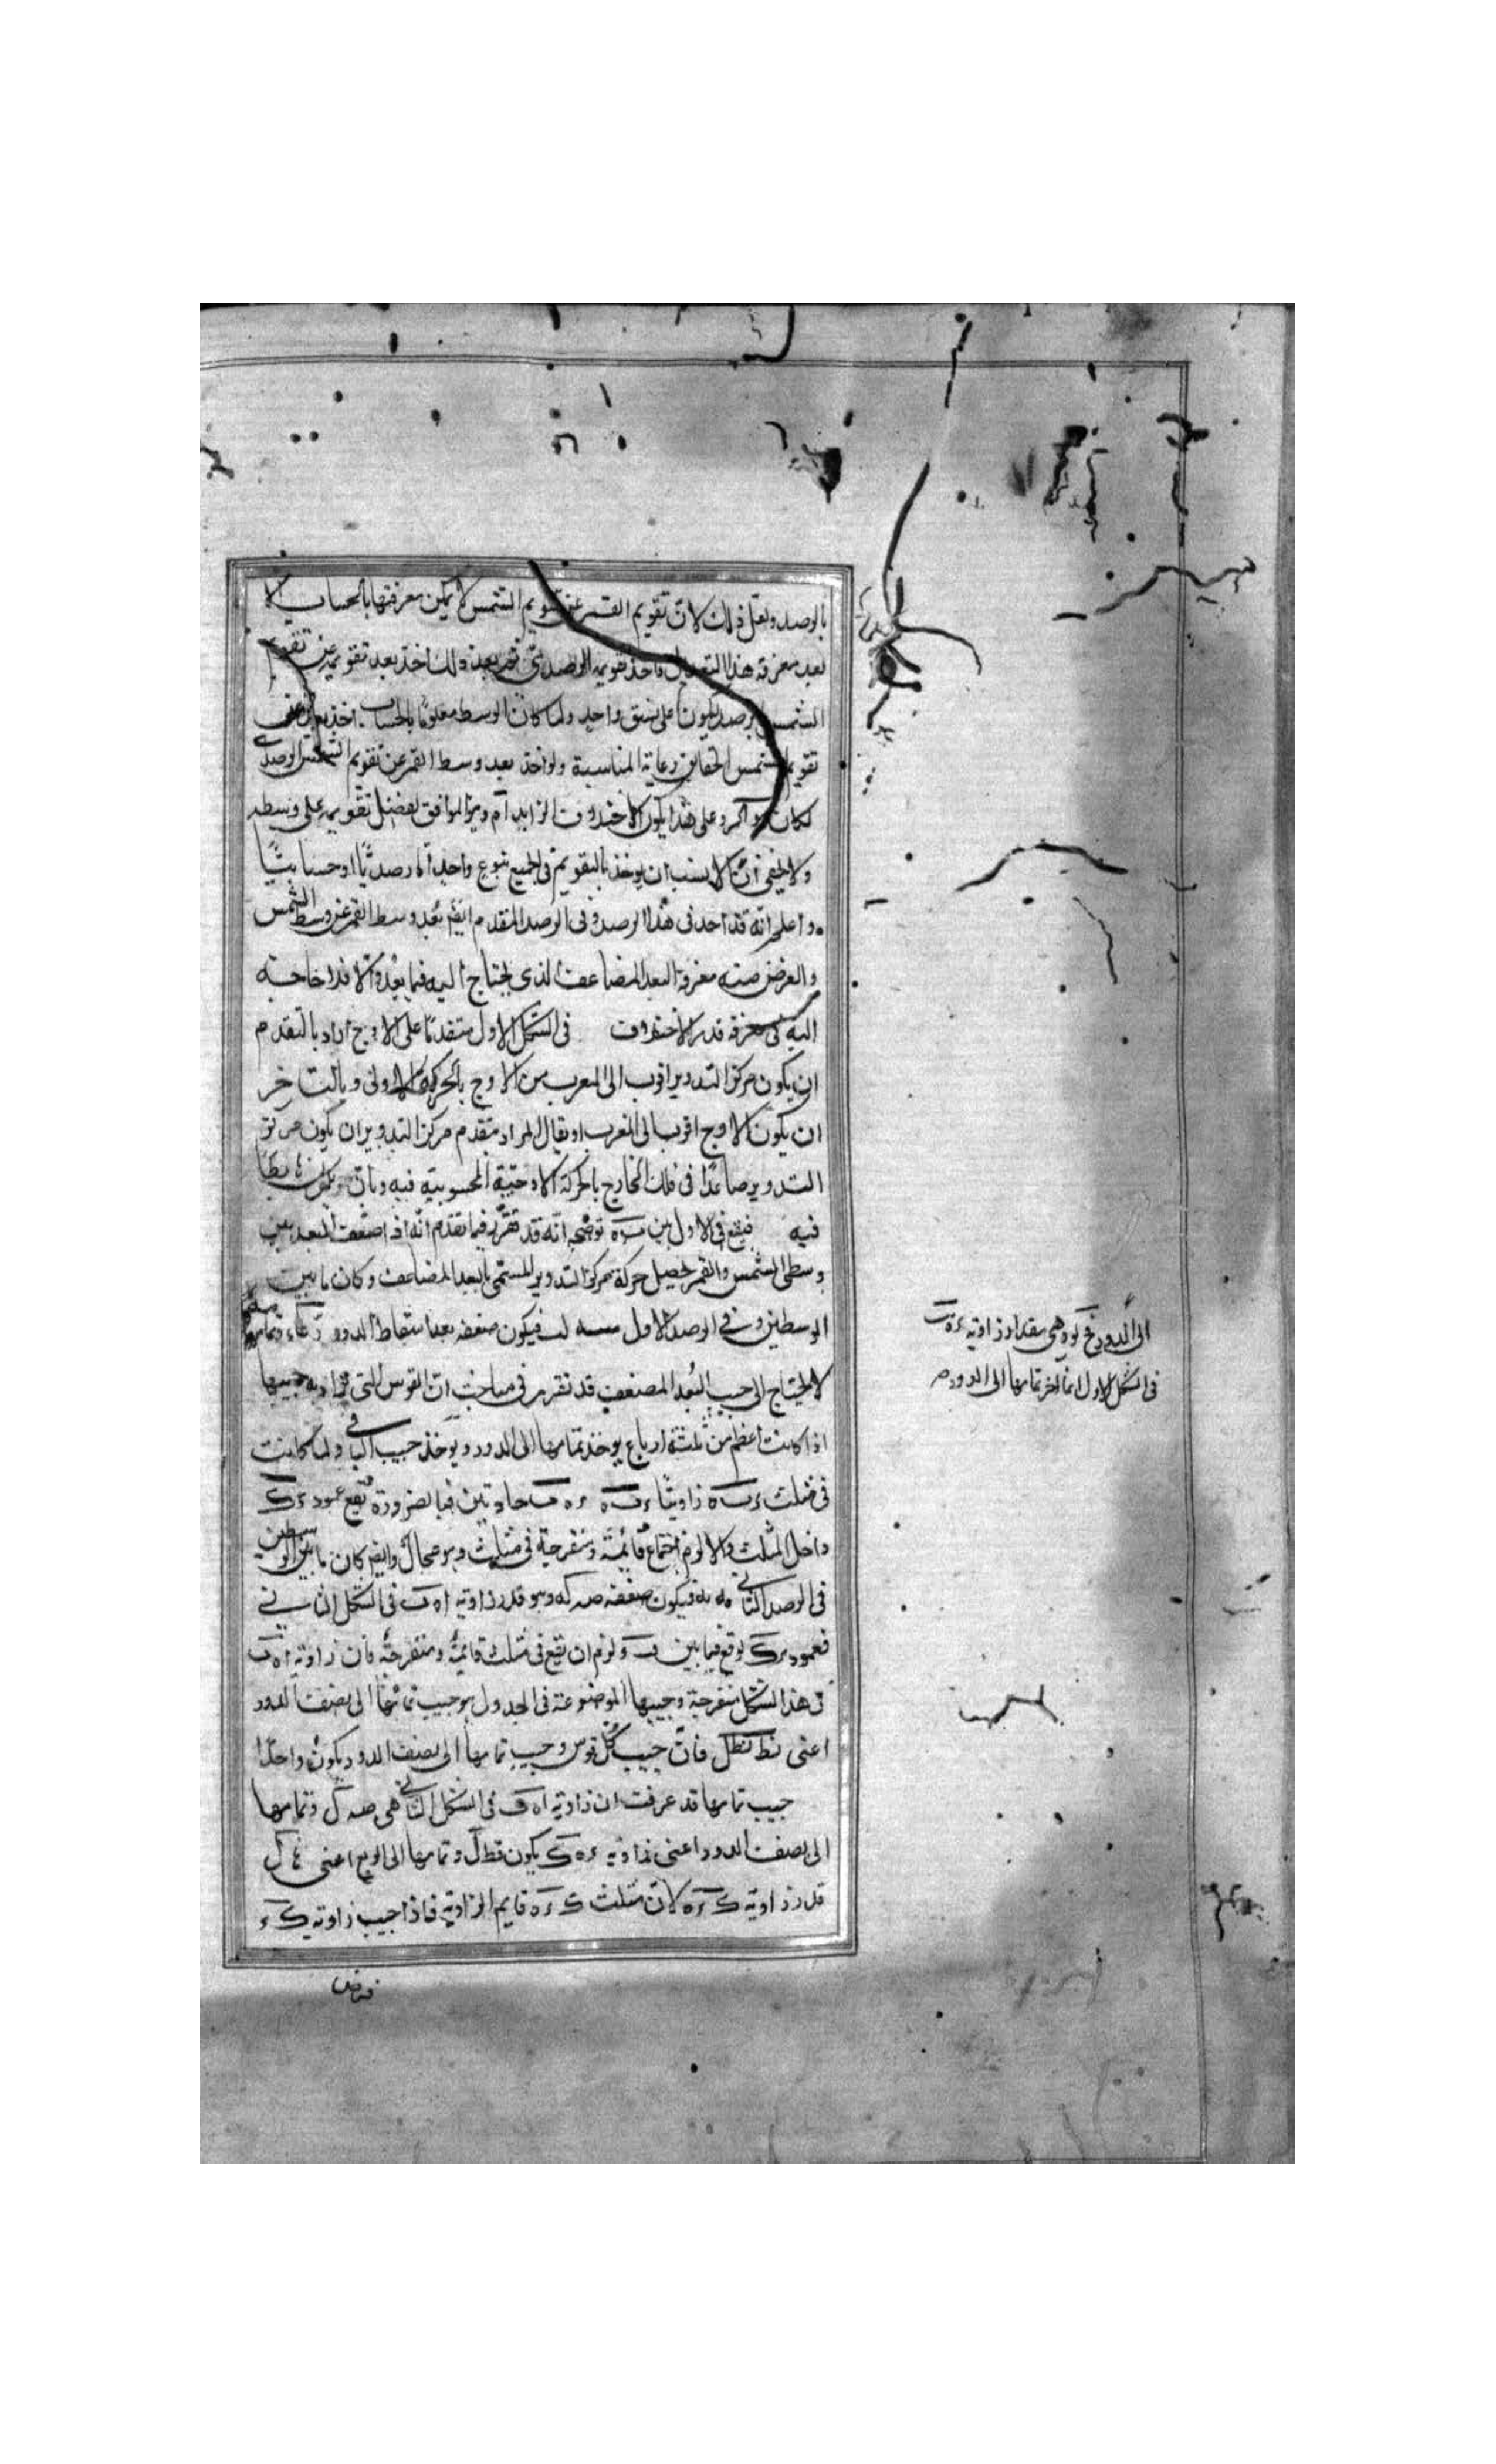 بالرصد ولعل ذلك لان تقويم القمر عن تقويم الشمس لا يمكن معرفتها بالحساب الا
بعد معرفة هذا التعديل فاخذ تقويمه الرصدى ثم بعد ذلك اخذ بعد تقويمه عن تقويم
الشمس برصد ليكون على نسق واحد ولما كان الوسط معلوما بالحساب اخذ بعده عن
تقويم الشمس رعاية المناسبة ولو اخذ بعد وسط القمر عن تقويم الشمس الرصدى
لكان وعلى هذا يكون الاختلاف الزايد الموافق لفضل تقويمه على وسطه
ولا يخفى ان الانسب ان يوخذ بالتقويم فى الجميع بنوع واحد اما رصديا او حسابيا
واعلم انه قد اخذ فى هذا الرصد وفى الرصد المتقدم ايضا بعد وسط القمر عن وسط الشمس
والغرض منه معرفة البعد المضاعف الذى يحتاج اليه فيما بعد والا فلا حاجة
اليه فى معرفة قدر الاختلاف فى الشكل الاول متقدما على الاوج اراد بالتقدم
ان يكون مركز التدوير اقرب الى المغرب من الاوج بالحركة الاولى وبالتاخر
ان يكون الاوج اقرب الى المغرب او يقال المراد بتقدم مركز التدوير ان يكون مركز
التدوير صاعدا فى فلك الخارج بالحركة الاوجية المحسوبة فيه وبان يكون هابطا
فيه فيقع فى الاول بين ب ه توضيحه انه قد تقرر فيما تقدم انه اذا ضعف البعد بين
وسطى الشمس والقمر يحصل حركة مركز التدوير المسمى بالبعد المضاعف وكان ما بين
الوسطين فى الرصد الاول فيكون ضعفه بعد اسقاط الدور
لا يحتاج الى جيب البعد المضعف قد تقرر فى مباحث ان القوس التى يراد جيبها
اذا كانت اعظم من ثلثة ارباع يوخذ تمامها الى الدور ويوخذ جيب الباقى ولما كانت
فى مثلث ء ب ه زاويتا ء ب ه ء ه ب حادتين فبالضرورة يقع عمود ء ك
داخل المثلث والا لزم اجتماع قائمة ومنفرجة فى مثلث وهو محال وايضا كان ما بين الوسطين
فى الرصد الثانى فيكون ضعفه وهو قدر زاوية ا ه ب فى الشكل الثانى
فعمود ء ك لو وقع فيما بين ب ه لزم ان يقع فى مثلث قائمة ومنفرجة فان زاوية ا ه ب
فى هذا الشكل منفرجة وجيبها الموضوعة فى الجدول هو جيب تمامها الى نصف الدور
اعنى فان جيب كل قوس وجيب تمامها الى نصف الدور يكون واحدا
جيب تمامها قد عرفت ان زاوية ا ه ب فى الشكل الثانى هى وتمامها
الى نصف الدور اعنى زاوية ء ه ك يكون وتمامها الى الربع اعنى
قدر زاوية ك ء ه لان مثلث ك ء ه قايم الزاوية فاذا جيب زاوية ك ء
فرض
الى الدور وهى مقدار زاوية ء ه ب
فى الشكل الاول انما اخذ تمامها الى الدور